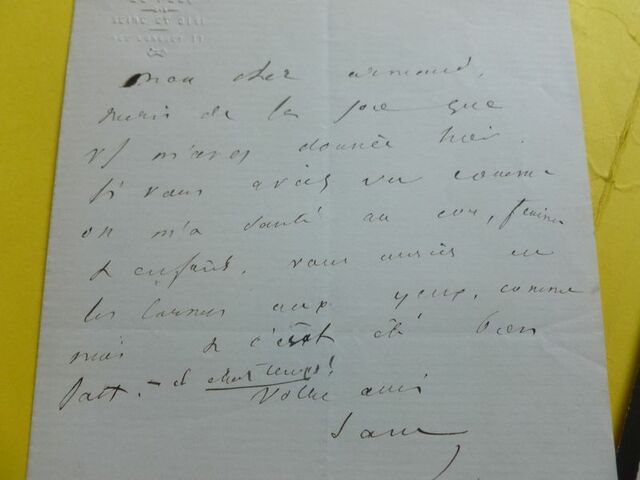 SEINE ET OISE
mon cher armand,
merci de la joie que
vs m'avez donnée hier.
si vous aviez vu comme
on m'a sauté au cou, femme
& enfants. vous auriez eu
les larmes aux yeux, comme
moi & c'était bien
fait. — il était temps!
Votre ami